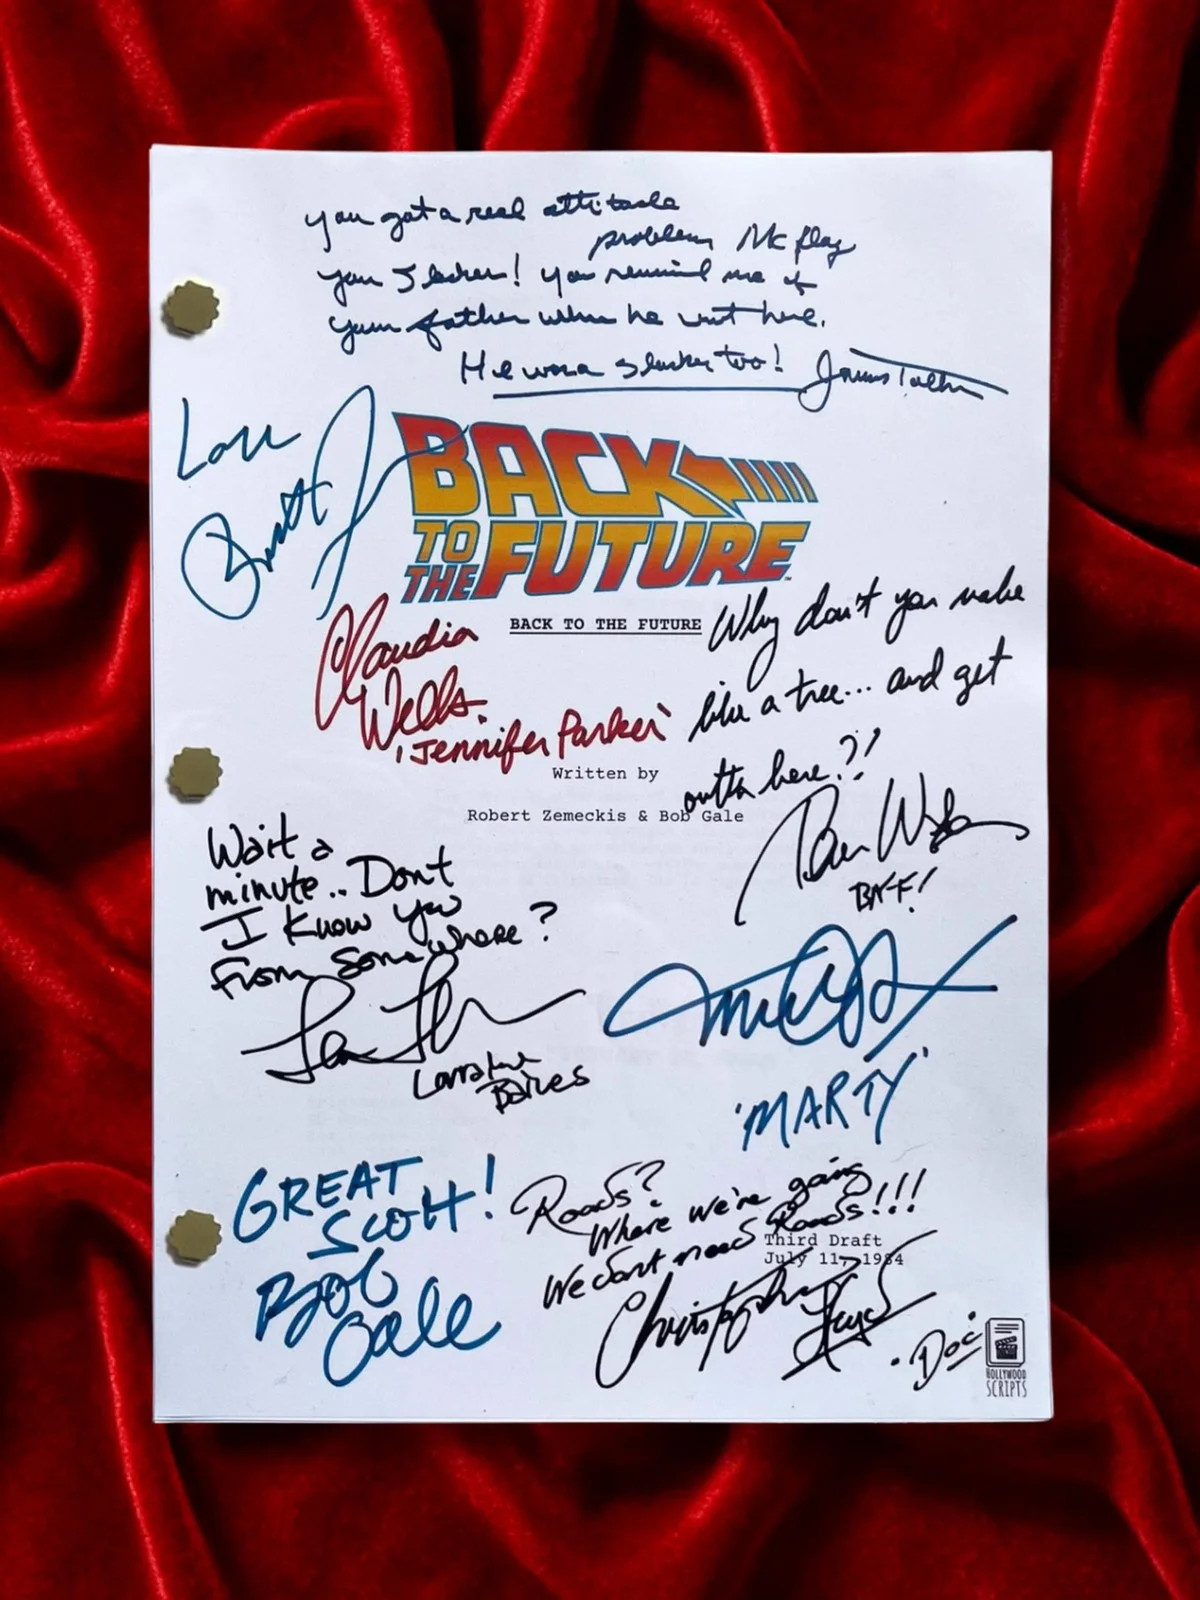 you got a real attitude
problem McFly
you Slacker! You remind me of
your father when he went here.
He was a slacker too! James Tolkan
Love
BACK
TO THE FUTURE™
BACK TO THE FUTURE
Claudia
Wells
'Jennifer Parker'
Why don't you make
like a tree... and get
outta here?!
BIFF!
Written by
Robert Zemeckis & Bob Gale
Wait a
minute.. Dont
I Know you
From Somewhere?
Lea
Lorraine
Baines
'MARTY'
GREAT
SCOTT!
Bob
Gale
Roads?
Where we're going
We dont need Roads!!!
Christopher Lloyd
"Doc"
Third Draft
July 11, 1984
HOLLYWOOD
SCRIPTS